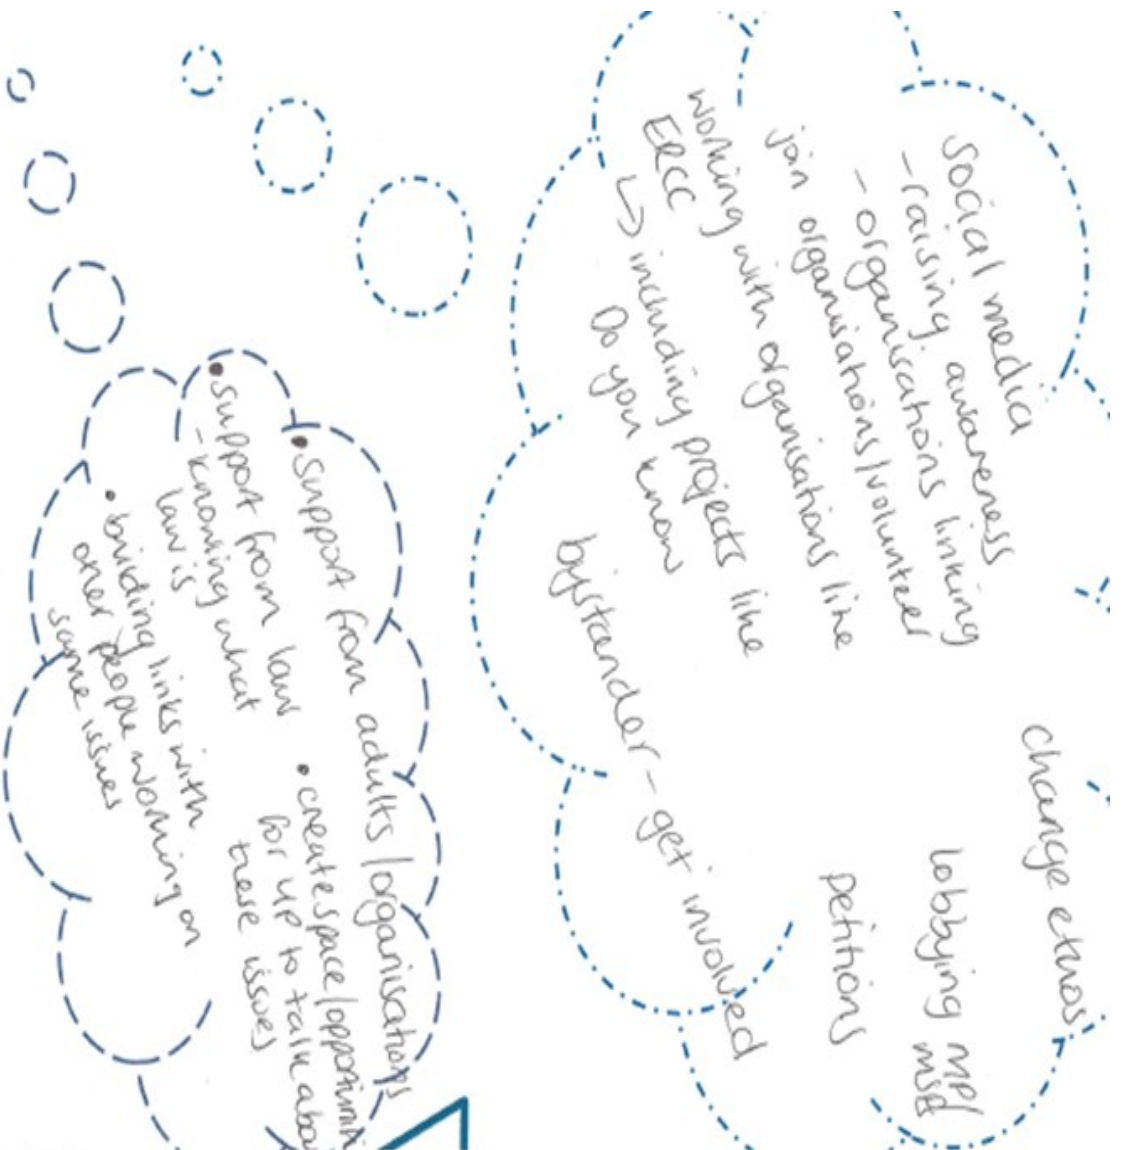 Social media
- raising awareness
- organisations linking
join organisations/volunteer
working with organisations like
ERCC
↳ including projects like
Do you know
bystander - get involved
change ethos
lobbying MP/
MSP
petitions
• support from adults/organisations
• support from law
- knowing what
law is
• building links with
other people working on
same issues
• create space/opportuniti
for YP to talk abou
these issues